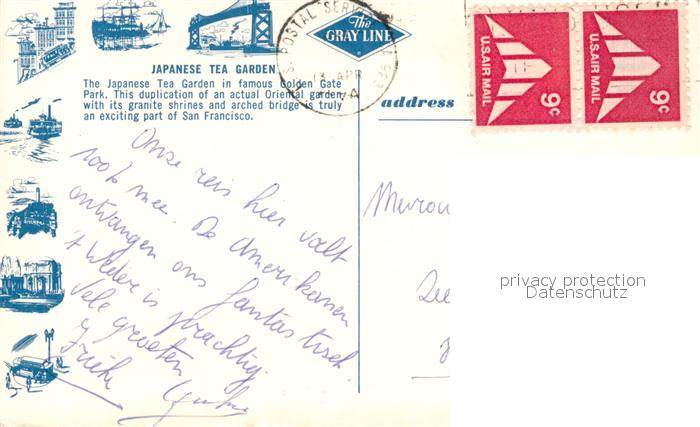 The
GRAY LINE
POSTAL SERVICE
13 APR
U.S. AIR MAIL
9c
U.S. AIR MAIL
9c
JAPANESE TEA GARDEN
The Japanese Tea Garden in famous Golden Gate
Park. This duplication of an actual Oriental garden
with its granite shrines and arched bridge is truly
an exciting part of San Francisco.
address
Onze reis hier valt
ook mee. De Amerikanen
ontvangen ons fantastisch.
't Weder is prachtig.
Vele groeten
Mevrou
privacy protection
Datenschutz